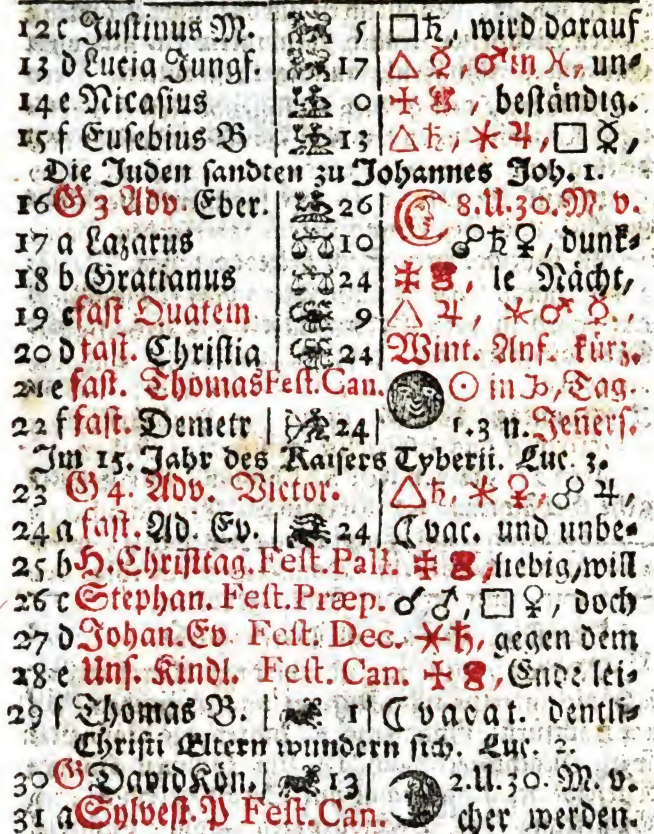 12 c Justinus M. 5 □ ♄, wird darauf
13 d Lucia Jungf. 17 △ ☿, ♂ in ♓, un⸗
14 e Nicasius 0 beständig.
15 f Eusebius B 13 △ ♄, ⚹ ♃, □ ☿,
Die Juden sandten zu Johannes Joh. 1.
16 G 3 Adv. Eber. 26 ☾ 8.U.30.M. v.
17 a Lazarus ♎ 10 ☍ ♄ ♀, dunk⸗
18 b Gratianus ♎ 24 le Nächt,
19 c fast Quatem 9 △ ♃, ⚹ ♂ ☿.,
20 d fast. Christia 24 Wint. Anf. kürz.
21 e fast. Thomas Fest. Can. ☉ in ♑, Tag.
22 f fast. Demetr 24 1.3 n. Jeñers.
Im 15. Jahr des Kaisers Tyberii. Luc. 3.
23 G 4. Adv. Victor. △ ♄, ⚹ ♀, ☍ ♃,
24 a fast. Ad. Ev. 24 ☾ vac. und unbe⸗
25 b H. Christtag. Fest. Pall. liebig, will
26 c Stephan. Fest. Præp. ☌ ♂, □ ♀, doch
27 d Johan. Ev. Fest. Dec. ⚹ ♄, gegen dem
28 e Uns. Kindl. Fest. Can. Ende lei⸗
29 f Thomas B. 1 ☾ vacat. dentli⸗
Christi Eltern wundern sich. Luc. 2.
30 G David Kön. 13 2.U.30.M. v.
31 a Sylvest. P Fest. Can. cher werden.